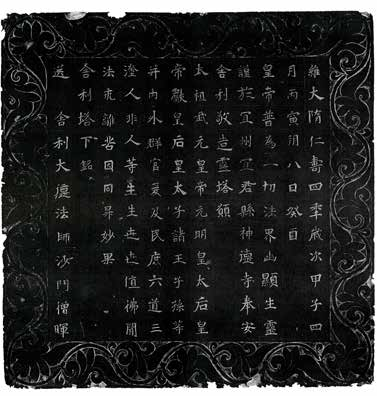 維大隋仁壽四年歲次甲子四
月丙寅朔八日癸酉
皇帝普為一切法界幽顯生靈
謹於宜州宜君縣神德寺奉安
舍利敬造靈塔願
太祖武元皇帝元明皇太后皇
帝獻皇后皇太子諸王子孫等
并內外群官爰及民庶六道三
塗人非人等生生世世值佛聞
法永離苦因同昇妙果
舍利塔下銘
送 舍利大德法師沙門僧暉